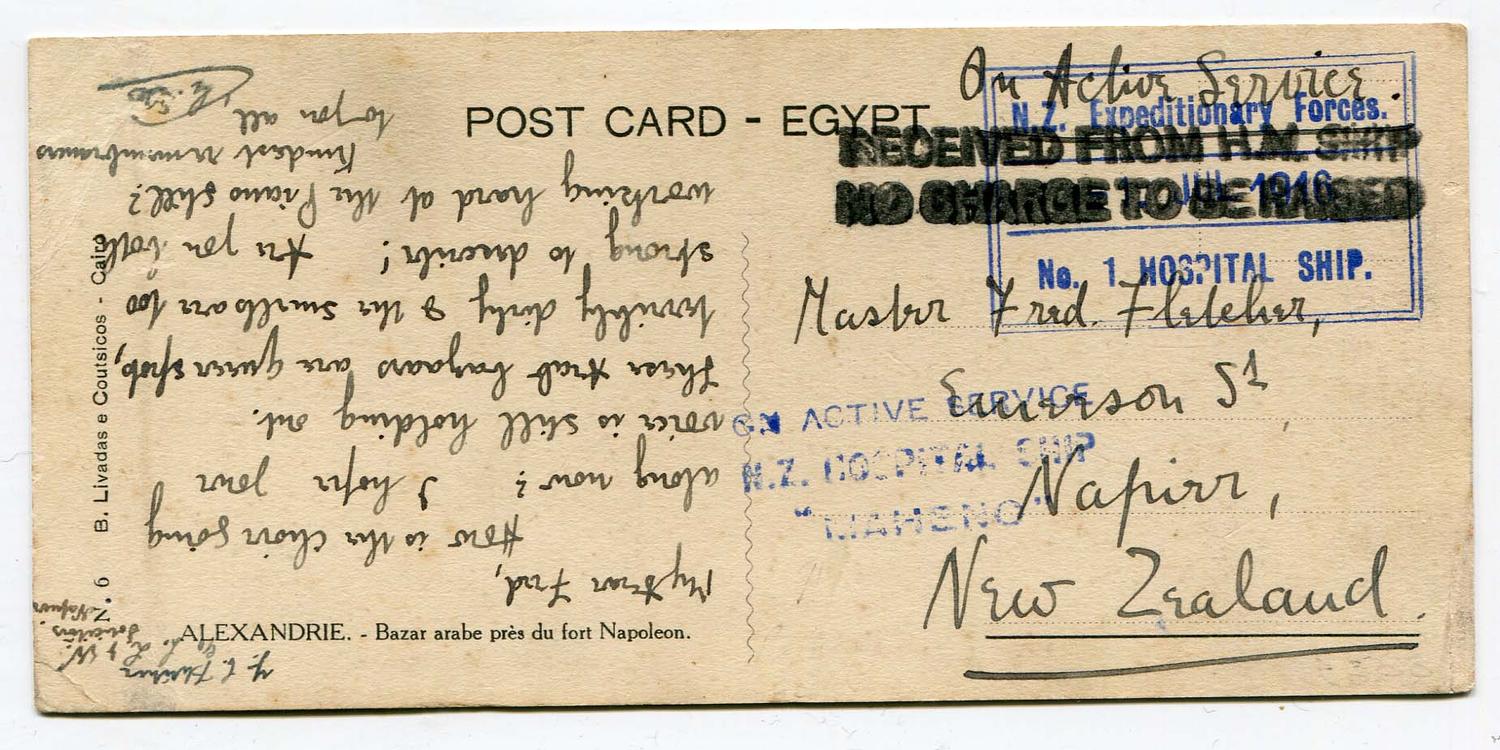 On Active Service.
POST CARD - EGYPT
N.Z. Expeditionary Forces.
RECEIVED FROM H.M. SHIP
NO CHARGE TO BE RAISED
JUL 1916
No. 1 HOSPITAL SHIP.
Master Fred. Fletcher,
Emerson St,
Napier,
New Zealand.
ON ACTIVE SERVICE
N.Z. HOSPITAL SHIP
"MAHENO"
My Dear Fred,
How is the choir going
along now? I hope your
voice is still holding out.
These Arab bazaars are queer spots,
terribly dirty & the smells are too
strong to describe! Are you both
working hard at the Piano still?
Kindest remembrances
to you all,
ALEXANDRIE. - Bazar arabe près du fort Napoleon.
N. 6 B. Livadas e Coutsicos - Cairo
Solicitors
Napier